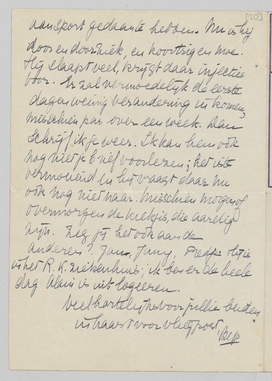 aansport gedaante hebben. Nu is hij
door en door ziek, en koortsig en moe.
Hij slaapt veel, krijgt daar injecties
voor. Er zal vermoedelijk de eerste
dagen weinig verandering in komen,
misschien pas over een week. Dan
schrijf ik je weer. Ik kan hem ook
nog niet je brief voorlezen; het is te
vermoeiend en hij vraagt daar nu
ook nog niet naar. Misschien morgen of
overmorgen de hekjes, die aardig
zijn. Zeg jij het ook aan de
anderen? Jany, Juny,
is het R.K. Ziekenhuis; ik ben er de heele
dag. Alain is uit logeeren.
Veel hartelijks voor jullie beiden,
in haast voor vliegpost,
Bep